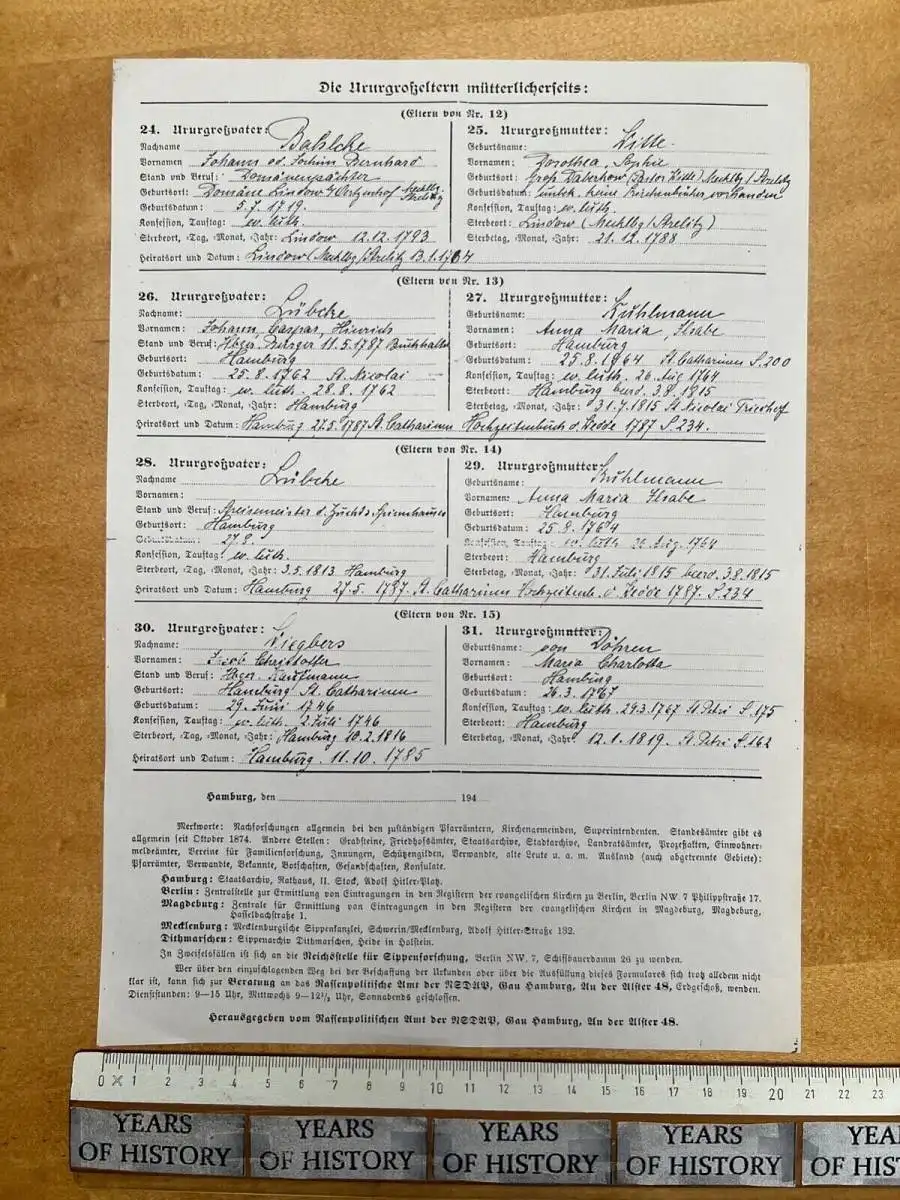 Die Ururgroßeltern mütterlicherseits:
(Eltern von Nr. 12)
24. Ururgroßvater:
Nachname Bahlcke
Vornamen Johann od. Jochim Bernhard
Stand und Beruf: Domänenpächter
Geburtsort: Domäne Lindow Mecklbg. Strelitz
Geburtsdatum: 5.7.1719.
Konfession, Tauftag: ev. luth.
Sterbeort, -Tag, -Monat, -Jahr: Lindow 12.12.1793
Heiratsort und Datum: Lindow (Mecklbg/Strelitz 13.1.1764
25. Ururgroßmutter:
Geburtsname: Witte.
Vornamen: Dorothea, Sophie
Geburtsort: Groß Daberkow (Pastor Witte) Mecklbg/Strelitz
Geburtsdatum: unbek. keine Kirchenbücher vorhanden
Konfession, Tauftag: ev. luth.
Sterbeort: Lindow (Mecklbg/Strelitz)
Sterbetag, -Monat, -Jahr: 21.12.1788
(Eltern von Nr. 13)
26. Ururgroßvater:
Nachname: Lübcke
Vornamen: Johann, Caspar, Hinrich
Stand und Beruf: Hbger. Bürger 11.5.1787 Buchhalter
Geburtsort: Hamburg
Geburtsdatum: 25.8.1762 St. Nicolai
Konfession, Tauftag: ev. luth. 28.8.1762
Sterbeort, -Tag, -Monat, -Jahr: Hamburg
Heiratsort und Datum: Hamburg 27.5.1787 St. Catharinen Hochzeitenbuch d. Wedde 1787 S. 234.
27. Ururgroßmutter:
Geburtsname: Kuhlmann
Vornamen: Anna Maria, Ilsabe
Geburtsort: Hamburg
Geburtsdatum: 25.8.1764 St Catharinen S. 200
Konfession, Tauftag: ev. luth. 26. Aug 1764
Sterbeort: Hamburg beerd. 3.8.1815
Sterbetag, -Monat, -Jahr: 31.7.1815 St Nicolai Friedhof
(Eltern von Nr. 14)
28. Ururgroßvater:
Nachname Lübcke
Vornamen:
Stand und Beruf: Speisemeister d. Zucht- Spinnhauses
Geburtsort: Hamburg
Geburtsdatum: 27.9.
Konfession, Tauftag: ev. luth.
Sterbeort, -Tag, -Monat, -Jahr: 3.5.1813 Hamburg
Heiratsort und Datum: Hamburg 27.5. 1787. St. Catharinen Hochzeitenb. d. Wedde 1787. S. 234
29. Ururgroßmutter:
Geburtsname: Kuhlmann
Vornamen: Anna Maria Ilsabe
Geburtsort: Hamburg
Geburtsdatum: 25.8.1764
Konfession, Tauftag: ev. luth 26. Aug. 1764
Sterbeort: Hamburg
Sterbetag, -Monat, -Jahr: 31. Juli 1815 beerd. 3.8.1815
(Eltern von Nr. 15)
30. Ururgroßvater:
Nachname: Siegbers
Vornamen: Jacob Christoffer
Stand und Beruf: Hbger. Kaufmann
Geburtsort: Hamburg St. Catharinen
Geburtsdatum: 29. Juni 1746
Konfession, Tauftag: ev. luth. 2. Juli 1746
Sterbeort, -Tag, -Monat, -Jahr: Hamburg 10.2.1816
Heiratsort und Datum: Hamburg. 11.10.1785
31. Ururgroßmutter:
Geburtsname: von Döhren
Vornamen: Maria Charlotta
Geburtsort: Hamburg
Geburtsdatum: 26.3.1767
Konfession, Tauftag: ev. luth. 29.3.1767 St. Petri S. 175
Sterbeort: Hamburg
Sterbetag, -Monat, -Jahr: 12.1.1819. St. Petri S. 162
Hamburg, den 194
Merkworte: Nachforschungen allgemein bei den zuständigen Pfarrämtern, Kirchengemeinden, Superintendenten. Standesämter gibt es
allgemein seit Oktober 1874. Andere Stellen: Grabsteine, Friedhofsämter, Staatsarchive, Stadtarchive, Landratsämter, Prozeßakten, Einwohner-
meldeämter, Vereine für Familienforschung, Innungen, Schützengilden, Verwandte, alte Leute u. a. m. Ausland (auch abgetrennte Gebiete):
Pfarrämter, Verwandte, Bekannte, Botschaften, Gesandschaften, Konsulate.
Hamburg: Staatsarchiv, Rathaus, II. Stock, Adolf Hitler-Platz.
Berlin: Zentralstelle zur Ermittlung von Eintragungen in den Registern der evangelischen Kirchen zu Berlin, Berlin NW 7 Philippstraße 17.
Magdeburg: Zentrale für Ermittlung von Eintragungen in den Registern der evangelischen Kirchen in Magdeburg, Magdeburg,
Hasselbachstraße 1.
Mecklenburg: Mecklenburgische Sippenkanzlei, Schwerin/Mecklenburg, Adolf Hitler-Straße 132.
Dithmarschen: Sippenarchiv Dithmarschen, Heide in Holstein.
In Zweifelsfällen ist sich an die Reichstelle für Sippenforschung, Berlin NW. 7, Schiffbauerdamm 26 zu wenden.
Wer über den einzuschlagenden Weg bei der Beschaffung der Urkunden oder über die Ausfüllung dieses Formulares sich trotz alledem nicht
klar ist, kann sich zur Beratung an das Rassenpolitische Amt der NSDAP, Gau Hamburg, An der Alster 48, Erdgeschoß, wenden.
Dienststunden: 9—15 Uhr, Mittwochs 9—12½ Uhr, Sonnabends geschlossen.
Herausgegeben vom Rassenpolitischen Amt der NSDAP, Gau Hamburg, An der Alster 48.
0 1 2 3 4 5 6 7 8 9 10 11 12 13 14 15 16 17 18 19 20 21 22 23
YEARS OF HISTORY
YEARS OF HISTORY
YEARS OF HISTORY
YEARS OF HISTORY
YEA
OF HIS